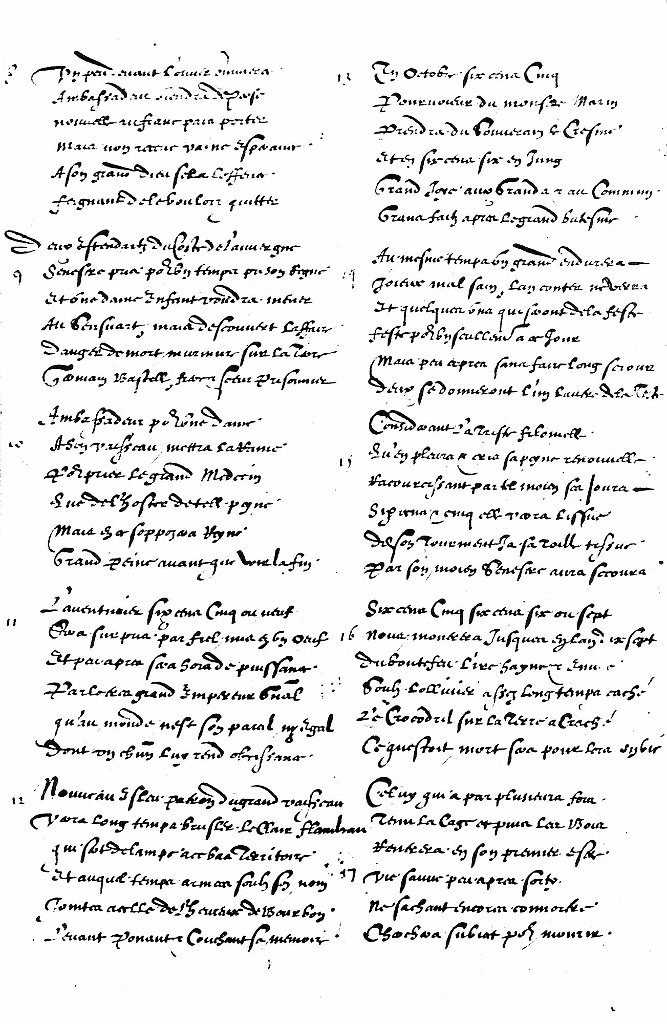 8
Un peu devant l'ouvert commerce
Ambassadeur viendra de Perse
nouvelle au franc pais porter
Mais non receu vaine Esperance
A son grand dieu sera loffence
feignant de le vouloir quitter
Deux Estendartz du Coste de l'auvergne
9
Senestre pris pour un temps prison Regne
Et une dame Enfant voudra mener
Au Sensuart mais descouvert laffaire
Danger de mort murmure sur la Terre
Germain Bastille frere soeur Prisonnier
Ambassadeur pour une dame
10
A son vaisseau mettra la Rame
Pour prier le grand Medecin
Que de l'hoster de telle peyne
Mais en ce sopposera Reyne
Grand Peine avant que voir la fin
L'aventurier six cens Cinq ou neuf
11
Sera surpris par fiel mis en un Oeuf
Et peu apres sera hors de puissance
Par le tres grand Empereur General
qu'au monde nest son pareil ny Egal
Dont un chacun luy rend obeissance
12
Nouveau Esleu patron du grand vaisseau
Verra long temps brusler le Clair flambeau
qui sert de lampe a ce bas Territoire
Et auquel temps armes soubz son nom
Jointes a celle de l'heureux de Bourbon
Levant Ponant & Couchant sa memoire
13
En Octobre six cens Cinq
Pourvoieur du monstre Marin
Prendra du Souverain le Cresme
Et en six cens six en Jung
Grand Joye aux Grands & au Commun
Grans faitz apres le grand batesme
14
Au mesme temps un grand endurera
Joieux mal sain, lan conter ne verra
Et quelques uns qui seront de la feste
feste pour un seullement a ce Jour
Mais peu apres sans faire long seiour
deux se donneront l'un lautre de la Teste
Considerant la Triste filomelle
15
Qu'en pleurs & cris sa peyne renouvelle
Racoursissant par tel moien ses jours
Six cens & cinq elle verra lissue
de son Tourment Ja la Toille tissue
Par son moien Senestre aura secours
Six cens Cinq six cens six ou sept
16 Nous monstrera Jusques en l'an dix sept
du boutefeu l'ire hayne & Envie
Soubz l'ollivier assez long temps caché
Le Crocodril sur la Terre a Caché
Ce qui estoit mort sera pour lors en vie
Celuy qui a par plusieurs fois
Tenu la Cage et puis les Bois
Rentrera en son premier estre
17 vie sauve peu apres sortir
Ne sachant encores connoistre
Cherchera subiect pour mourir